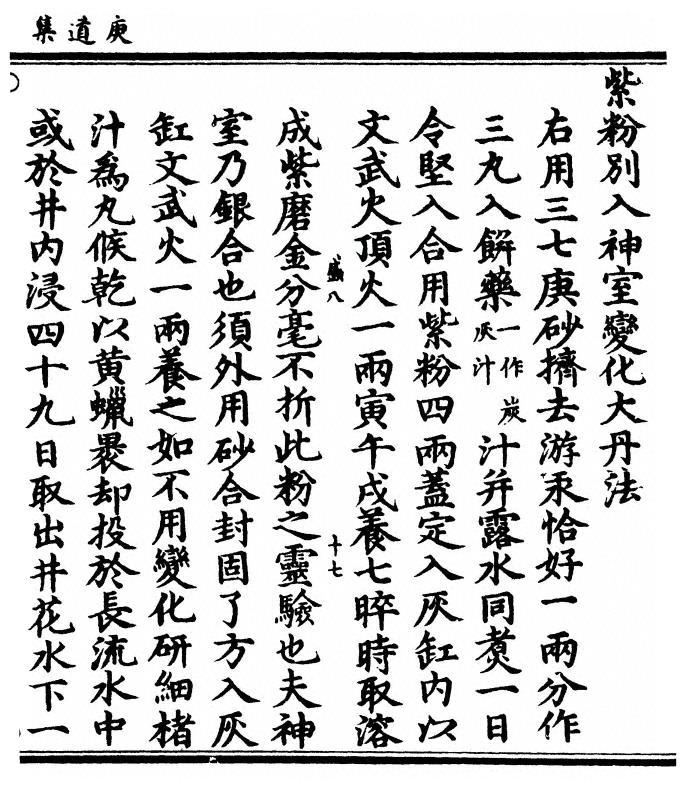 庚道集
紫粉別入神室變化大丹法
右用三七庚砂擠去游汞恰好一兩分作
三丸入餠藥一作炭灰汁汁幷露水同煑一日
令堅入合用紫粉四兩蓋定入灰缸內以
文武火頂火一兩寅午戌養七晬時取溶
盛八
十七
成紫磨金分毫不折此粉之靈驗也夫神
室乃銀合也須外用砂合封固了方入灰
缸文武火一兩養之如不用變化研細楮
汁爲丸候乾以黃蠟褁却投於長流水中
或於井內浸四十九日取出井花水下一